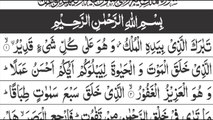 بِسْمِ اللّٰهِ الرَّحْمٰنِ الرَّحِيْمِ
تَبٰرَكَ الَّذِيْ بِيَدِهِ الْمُلْكُ وَهُوَ عَلٰى كُلِّ شَيْءٍ قَدِيْرُ
الَّذِيْ خَلَقَ الْمَوْتَ وَالْحَيٰوةَ لِيَبْلُوَكُمْ اَيُّكُمْ اَحْسَنُ عَمَلًا
وَهُوَ الْعَزِيْزُ الْغَفُوْرُ الَّذِيْ خَلَقَ سَبْعَ سَمٰوٰتٍ طِبَاقًا